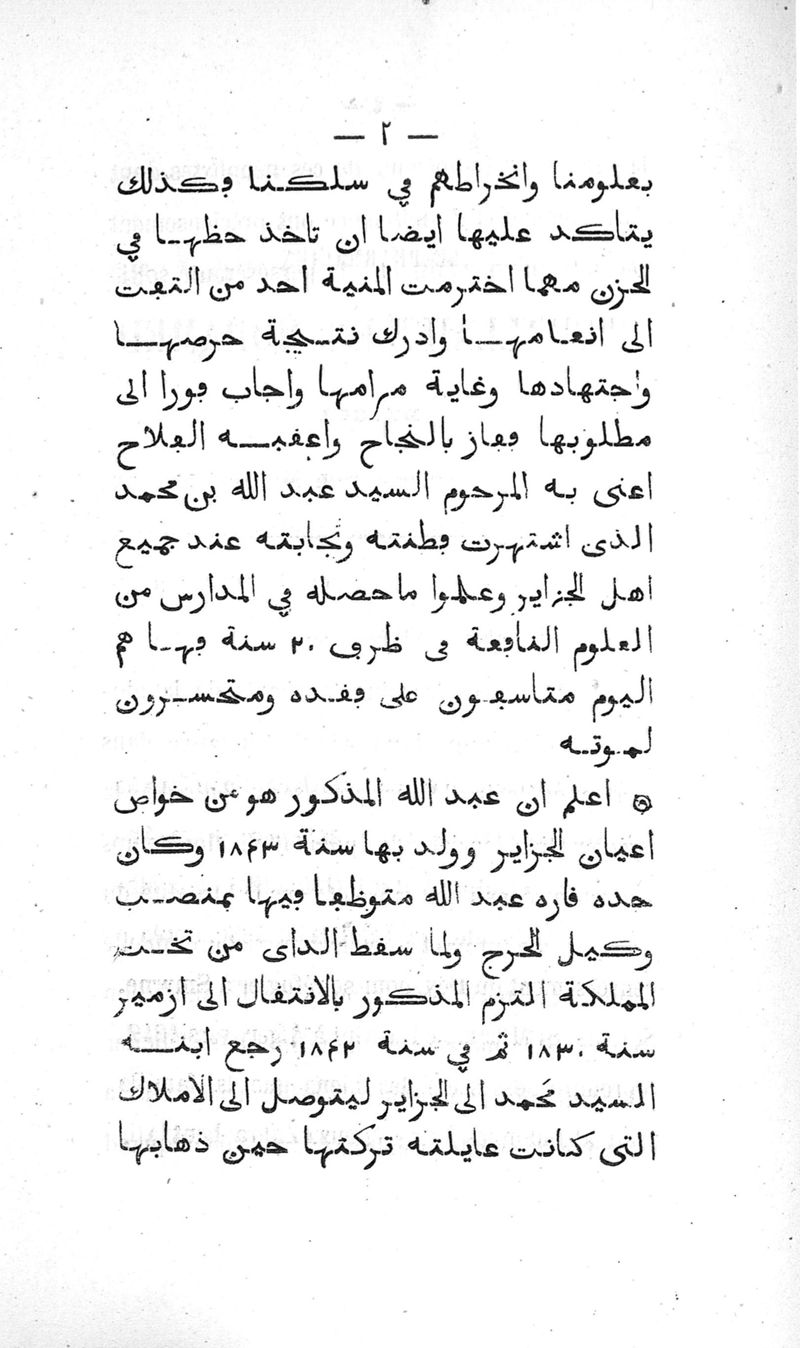 — ٢ —
بعلومنا وانخراطهم في سلكنا فكذلك
يتاكد عليها ايضا ان تاخذ حظها في
الحزن مهما اخترمت المنية احد من التفت
الى انعامها وادرك نتيجة حرصها
واجتهادها وغاية مرامها واجاب فورا الى
مطلوبها ففاز بالنجاح واعقبه الفلاح
اعنى به المرحوم السيد عبد الله بن محمد
الذى اشتهرت فطنته ونجابته عند جميع
اهل الجزاير وعلموا ما حصله في المدارس من
العلوم النافعة في ظرف ٢٠ سنة فها هم
اليوم متاسفون على فقده ومتحسرون
لموته
۞ اعلم ان عبد الله المذكور هو من خواص
اعيان الجزاير وولد بها سنة ١٨٤٣ وكان
جده قاره عبد الله متوظفا فيها بمنصب
وكيل الحرج ولما سقط الداى من تخت
المملكة التزم المذكور بالانتقال الى ازمير
سنة ١٨٣٠ ثم في سنة ١٨٤٢ رجع ابنه
السيد محمد الى الجزاير ليتوصل الى الاملاك
التى كانت عايلته تركتها حين ذهابها